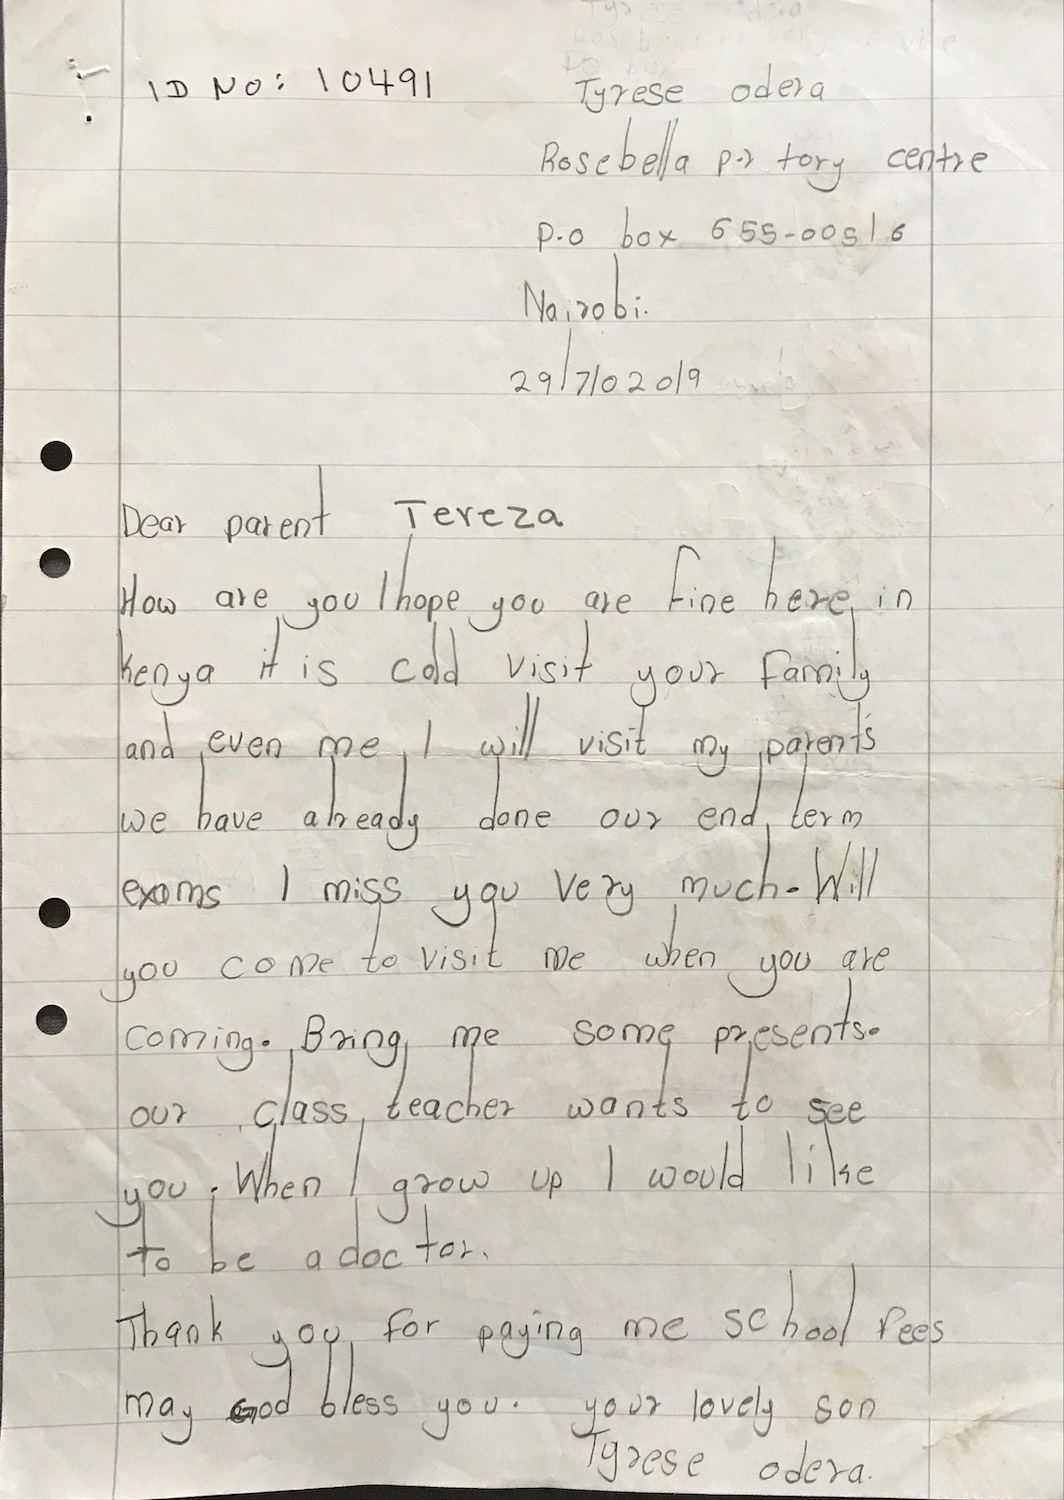 ID NO: 10491
Tyrese odera
Rosebella p.r tory centre
P.o box 655-00516
Nairobi.
29/7/02019
Dear parent Tereza
How are you I hope you are fine here in
kenya it is cold visit your family
and even me I will visit my parents
we have already done our end term
exams I miss you very much. Will
you come to visit me when you are
coming. Bring me some presents.
our class teacher wants to see
you. When I grow up I would like
to be a doctor.
Thank you for paying me school fees
may God bless you. your lovely son
Tyrese odera.